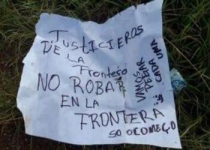 JUSTICIEROS
DE LA
Frontera
NO ROBAR
EN LA
FRONTERA
VAMOS
POR
CADA UNO